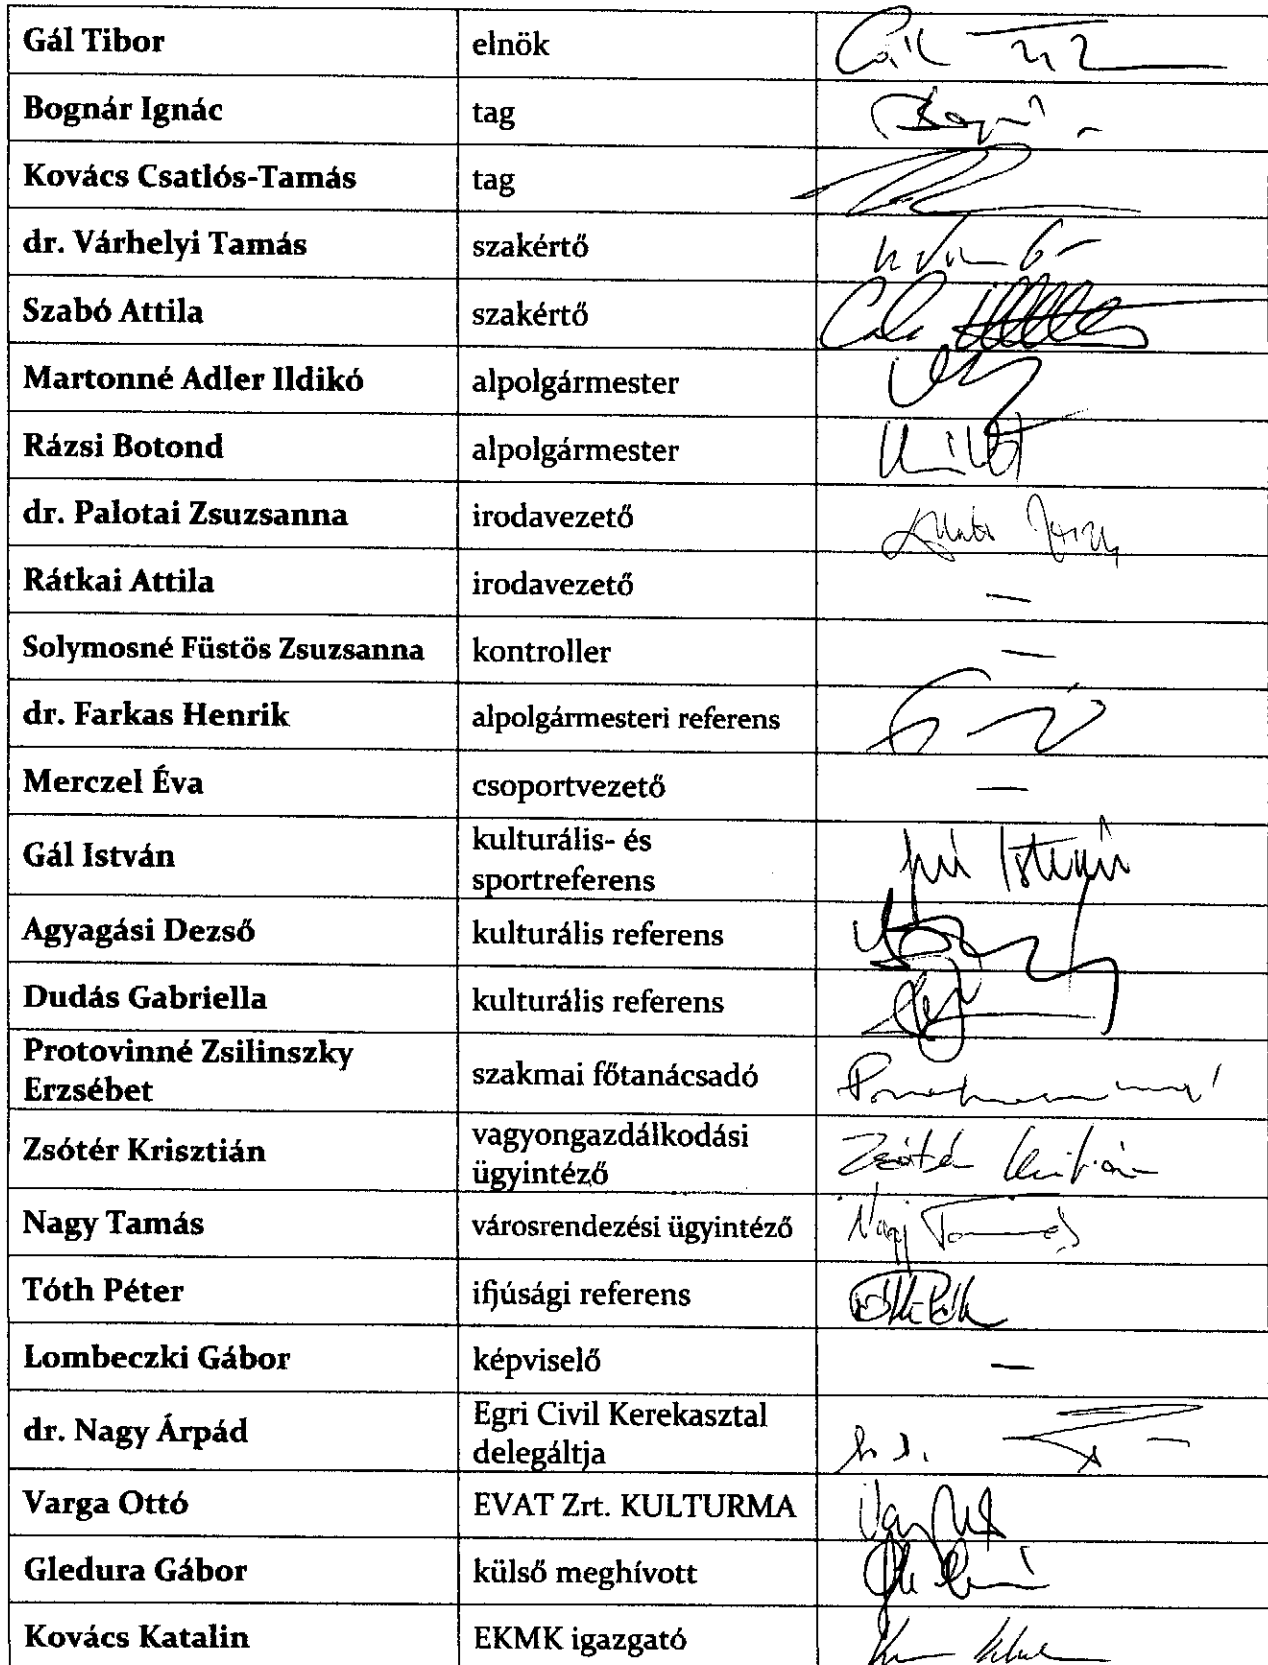 Gál Tibor elnök
Bognár Ignác tag
Kovács Csatlós-Tamás tag
dr. Várhelyi Tamás szakértő
Szabó Attila szakértő
Martonné Adler Ildikó alpolgármester
Rázsi Botond alpolgármester
dr. Palotai Zsuzsanna irodavezető
Rátkai Attila irodavezető —
Solymosné Füstös Zsuzsanna kontroller —
dr. Farkas Henrik alpolgármesteri referens
Merczel Éva csoportvezető —
Gál István kulturális- és
sportreferens
István
Agyagási Dezső kulturális referens
Dudás Gabriella kulturális referens
Protovinné Zsilinszky
Erzsébet
szakmai főtanácsadó
Zsótér Krisztián vagyongazdálkodási
ügyintéző
Zsótér Krisztián
Nagy Tamás városrendezési ügyintéző Nagy Tamás
Tóth Péter ifjúsági referens
Lombeczki Gábor képviselő —
dr. Nagy Árpád Egri Civil Kerekasztal
delegáltja
Varga Ottó EVAT Zrt. KULTURMA
Gledura Gábor külső meghívott
Kovács Katalin EKMK igazgató